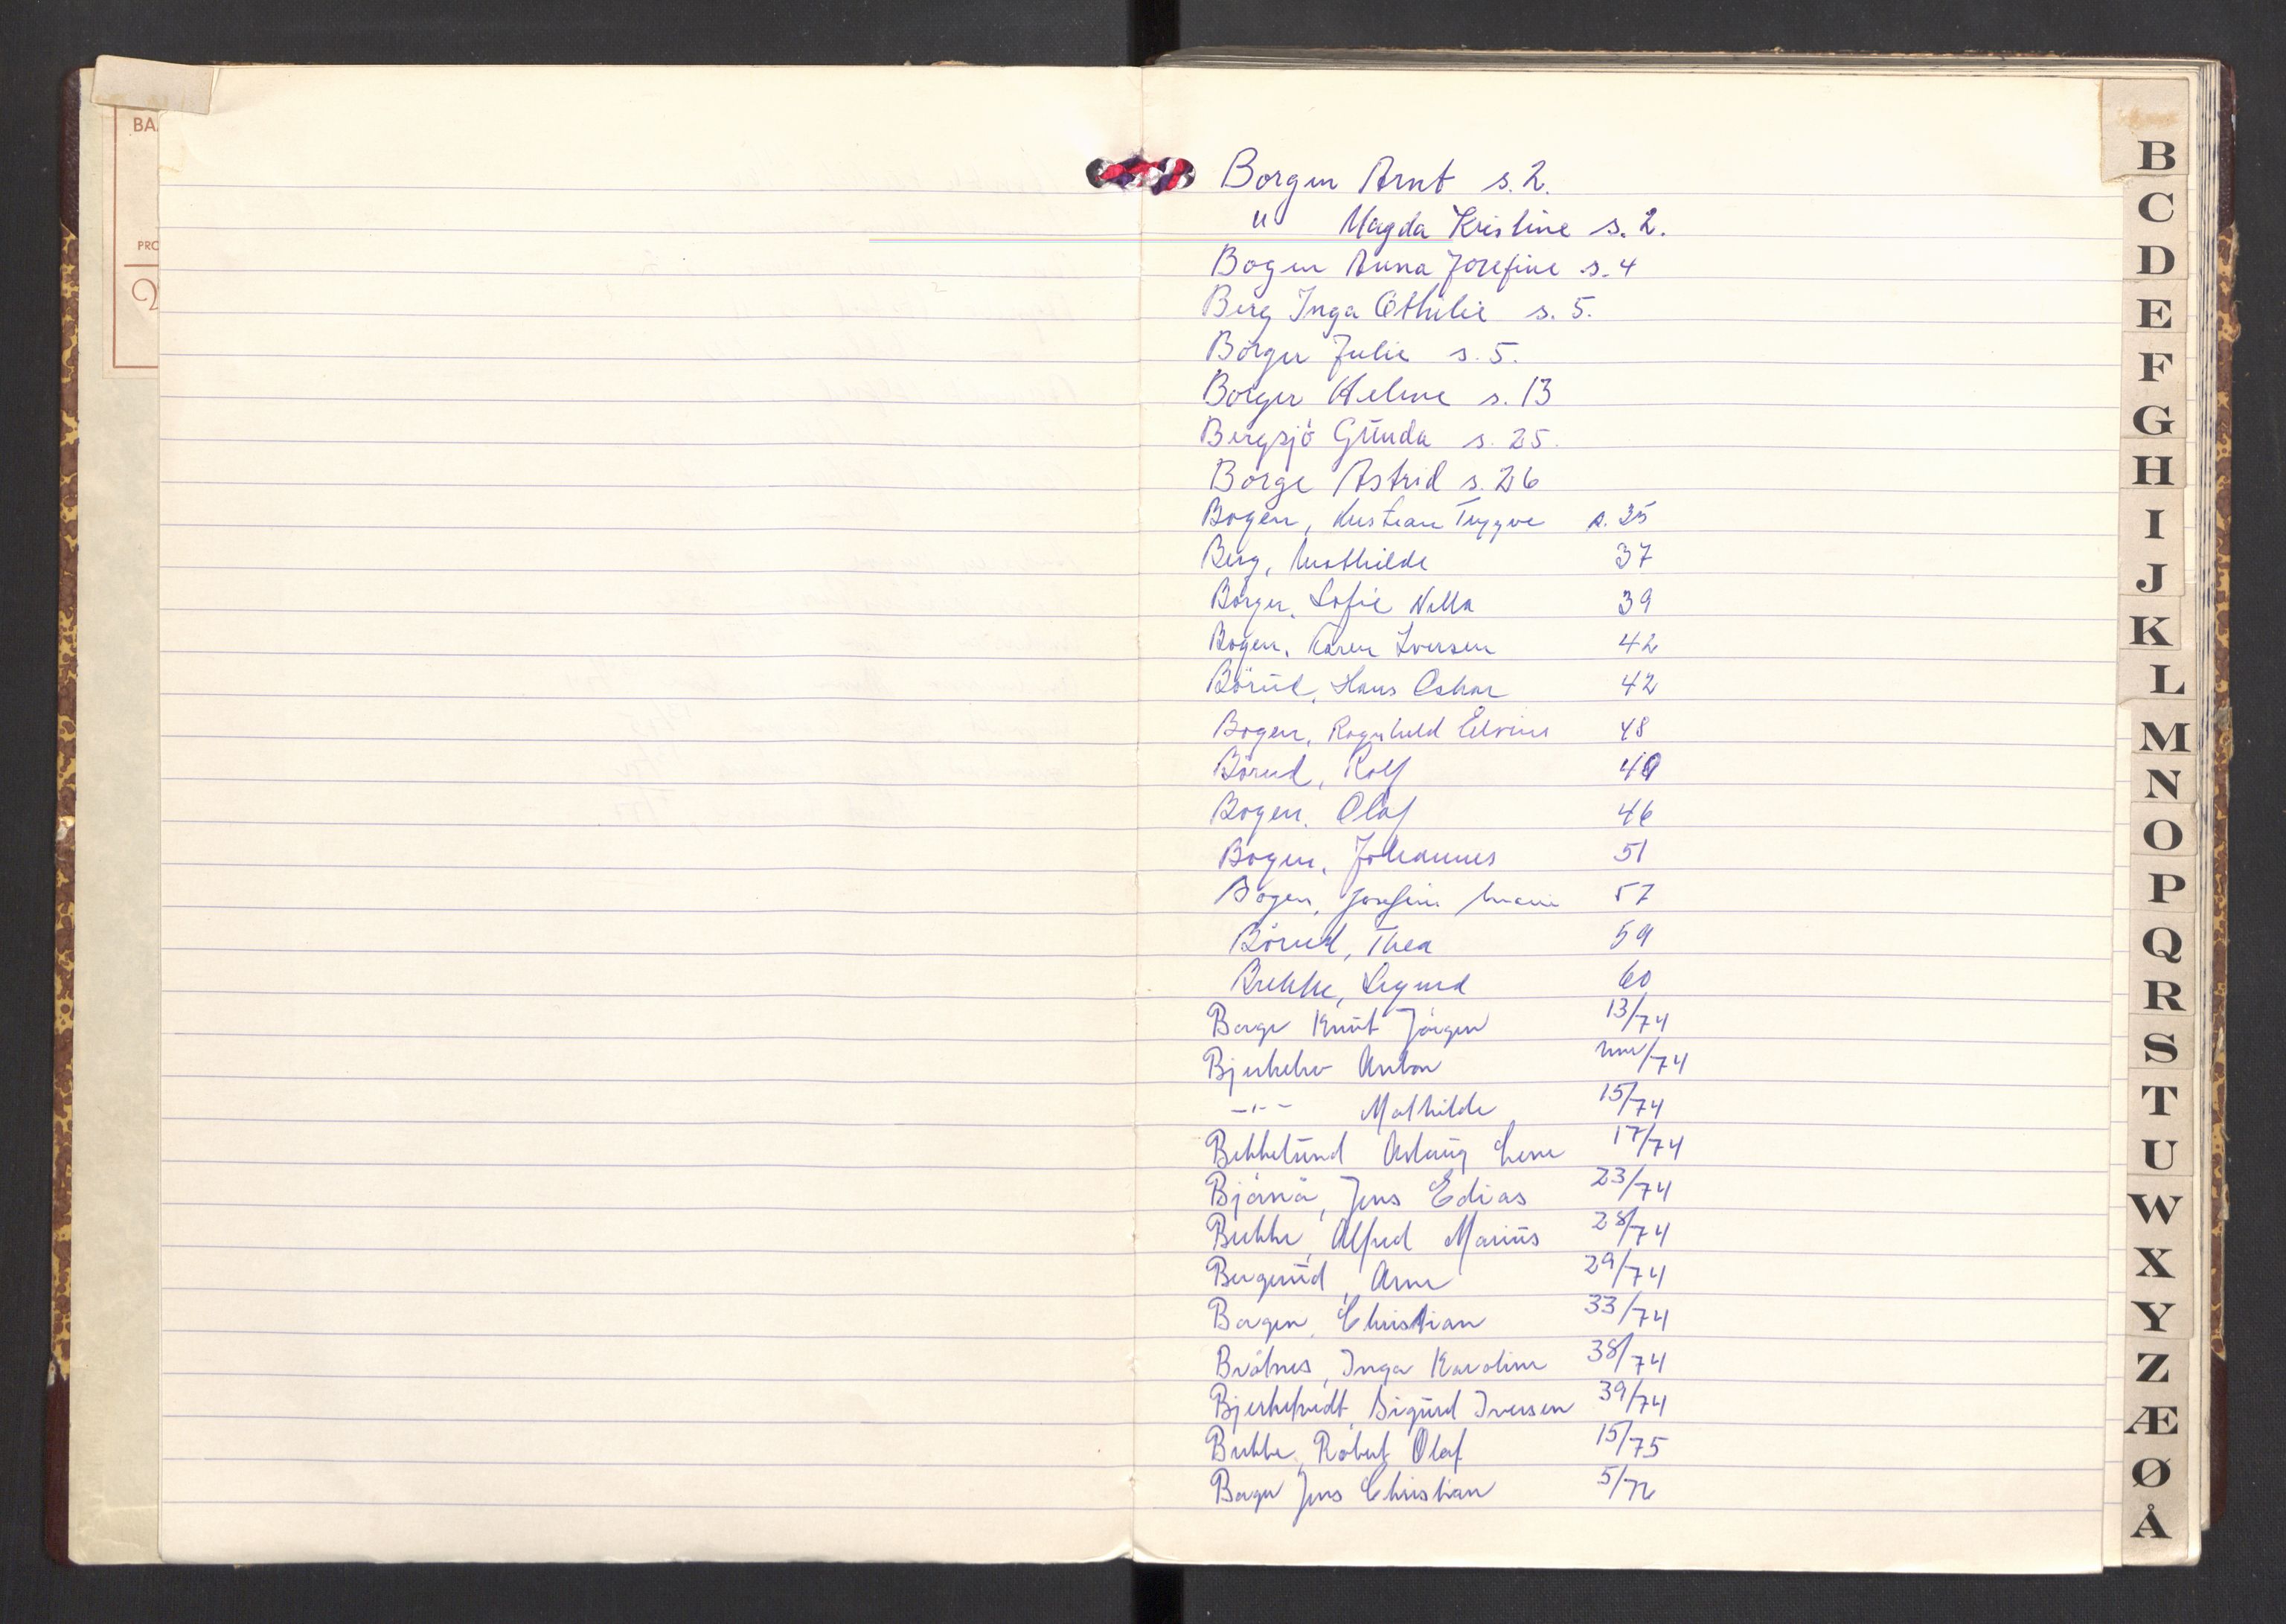 BA
PRO
Borgen Arnt s. 2.
" Magda Kristine s. 2.
Bogen Anna Josefine s. 4
Berg Inga Othilie s. 5.
Börger Julie s. 5.
Börger Helene s. 13
Bergsjö Gunda s. 25.
Borge Astrid s. 26
Bogen, Kristian Trygve s. 35
Berg, Mathilde 37
Börger, Sofie 39
Bogen, Karen Iversen 42
Börud, Hans Oskar 42
Bogen, Ragnhild 48
Börud, Rolf
Bogen, Olaf 46
Bogen, Johannes 51
Bogen, Josefine Marie 57
Börud, Thea 59
Brekke, Sigurd 60
Borge Knut Jörgen 13/74
Anton /74
-"- Mathilde 15/74
Bekkelund Aslaug Lene 17/74
Bjårnå, Jens Edias 23/74
Brekke, Alfred Marius 28/74
Bergerud, Arne 29/74
Borgen, Christian 33/74
Bråtnes, Inga Karoline 38/74
Sigurd Iversen 39/74
Brekke, Robert Olaf 15/75
Jens Christian 5/76
B
C
D
E
F
G
H
I
J
K
L
M
N
O
P
Q
R
S
T
U
W
X
Y
Z
Æ
Ø
Å